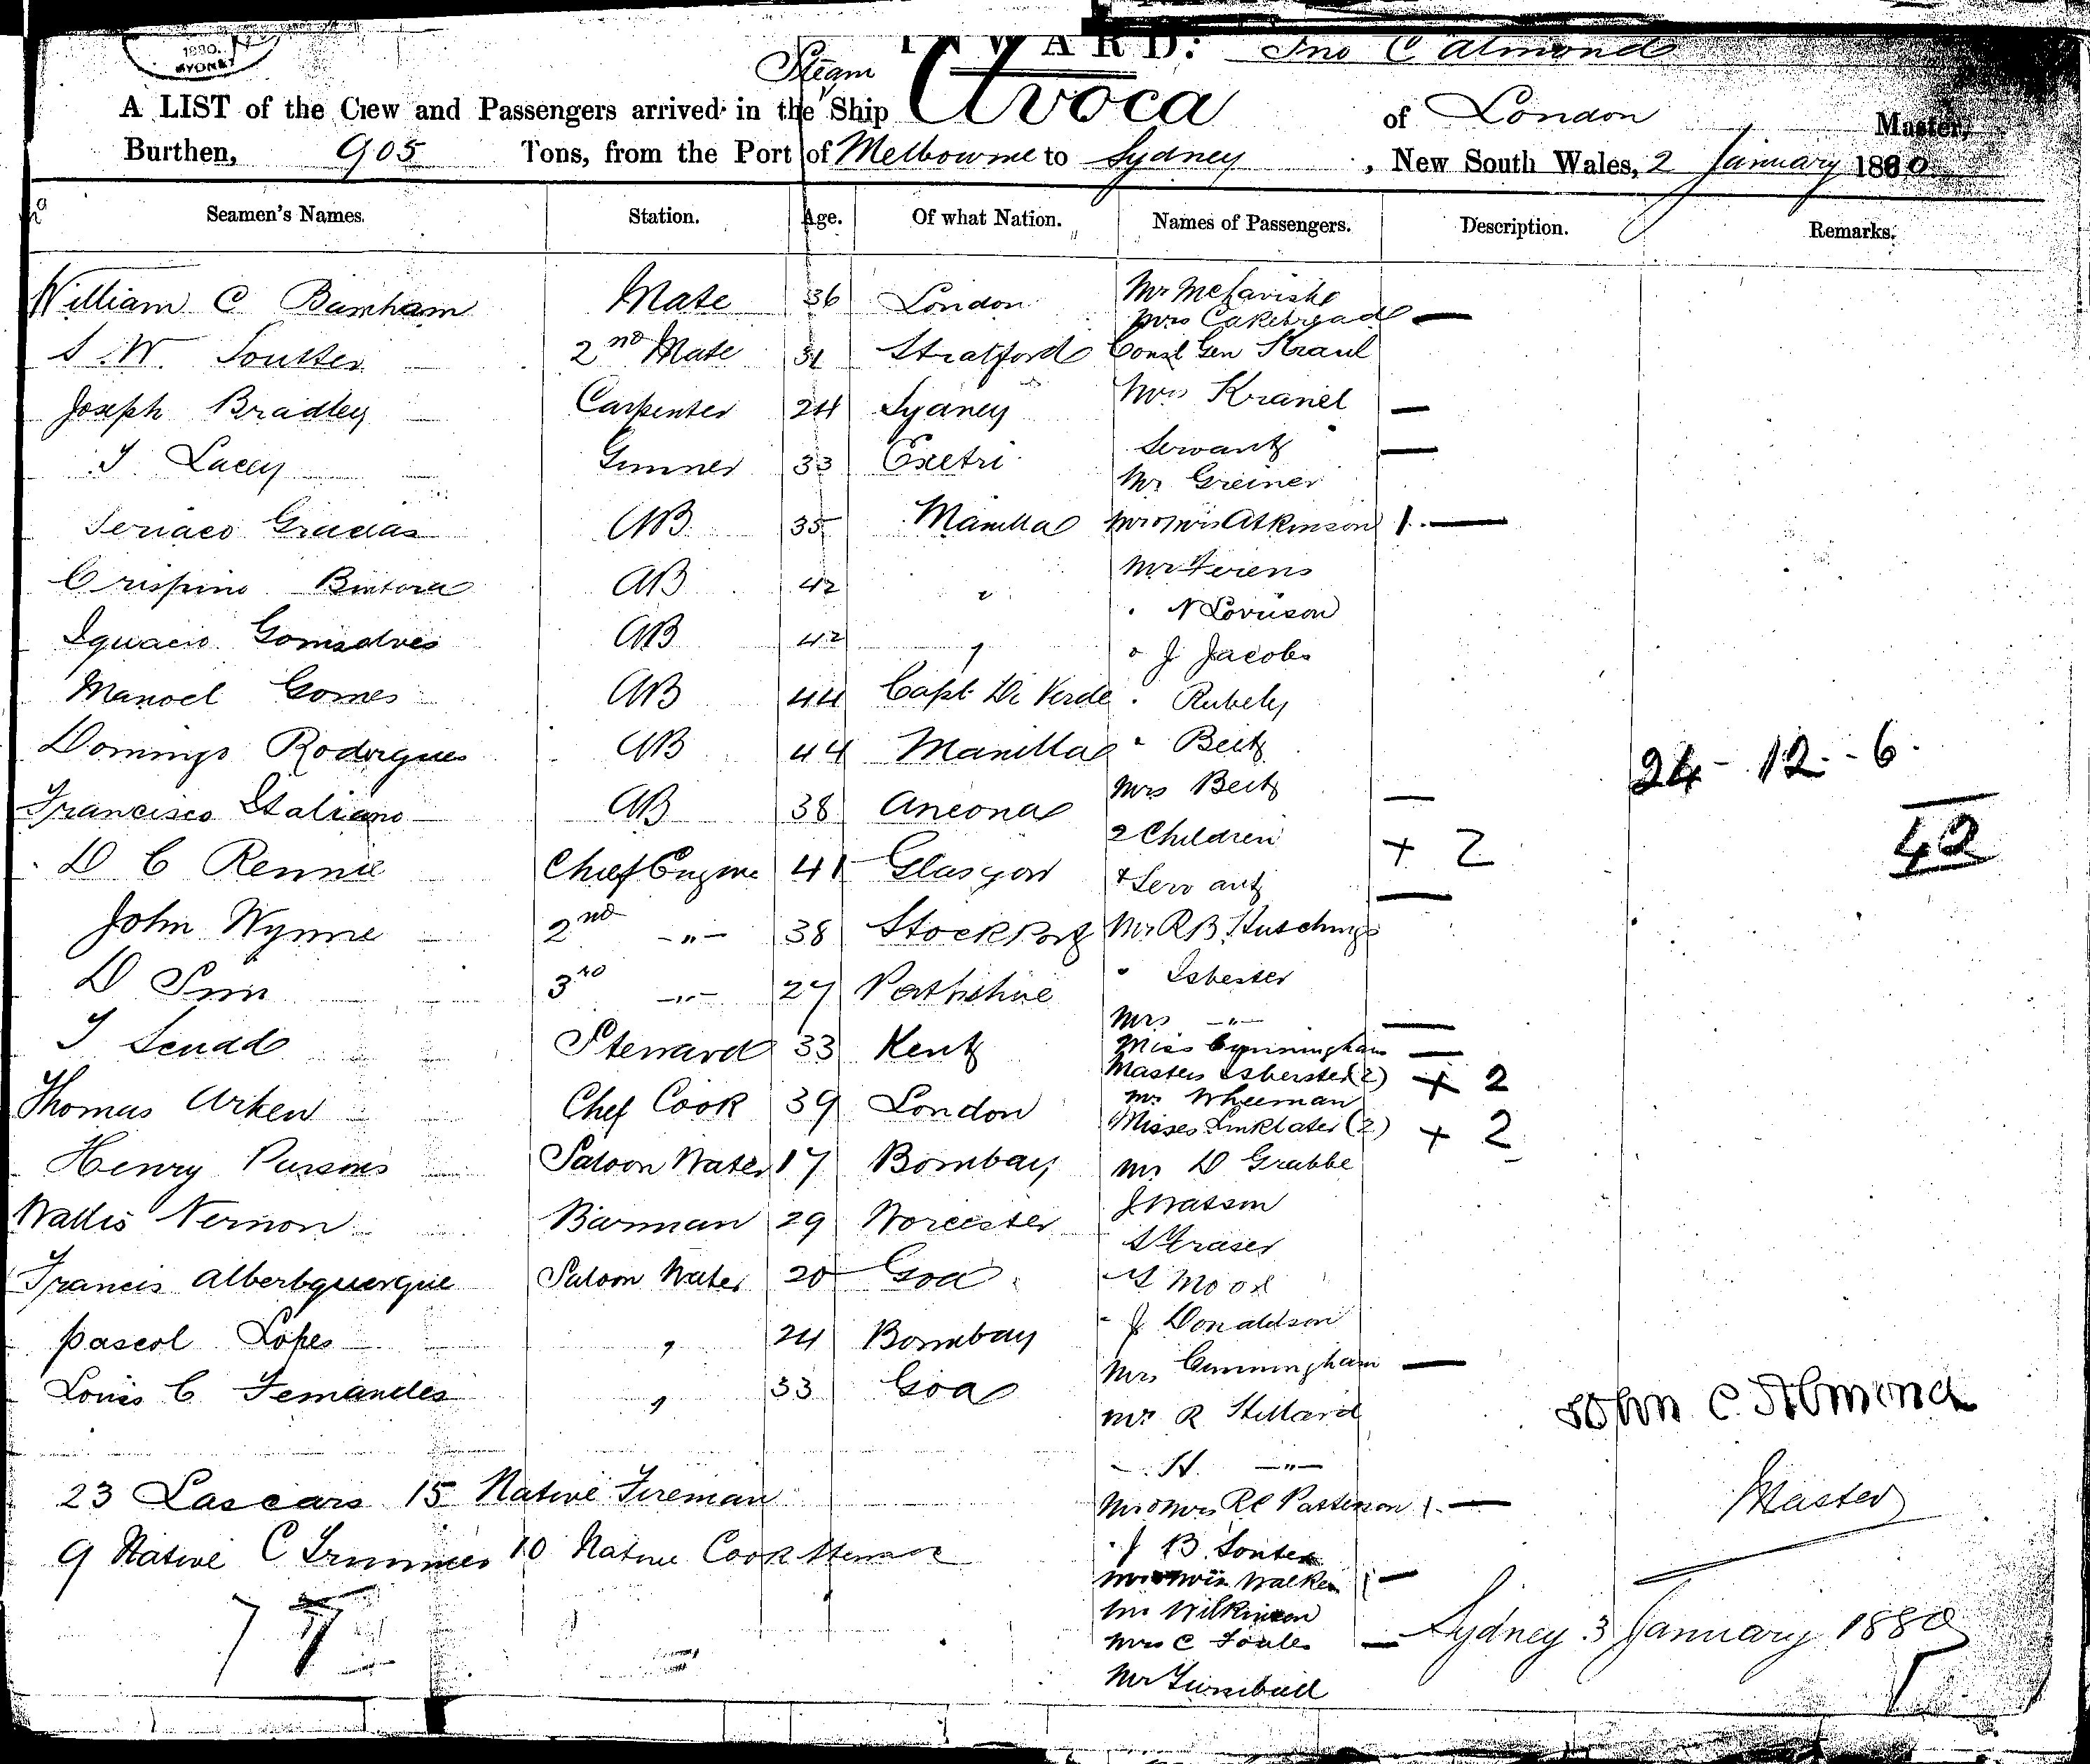 1880.
SYDNEY
INWARD: Jno C Almond
Steam
A LIST of the Crew and Passengers arrived in the Ship Avoca of London Master,
Burthen, 905 Tons, from the Port of Melbourne to Sydney, New South Wales, 2 January 1880
Seamen's Names. Station. Age. Of what Nation. Names of Passengers. Description. Remarks.
William C Barnham Mate 36 London Mr McTavish
Mrs Cakebread —
S. W. Soutter 2nd Mate 31 Stratford Consl Gen Kraul
Joseph Bradley Carpenter 24 Sydney Mrs Kranel —
J Lacey Gunner 33 Exetri Servant —
Mr Greiner
Seriaco Gracias AB 35 Manilla Mr & Mrs Atkinson 1. —
Crispino Bintora AB 42 " Mr Ferens
" N Lovrison
Ignacio Gomsalves AB 42 " " J Jacobs
Manoel Gomes AB 44 Capt Di Verde " Rubely
Domingo Rodrigues AB 44 Manilla " Beit
24 - 12 - 6
Francisco Italiano AB 38 Ancona Mrs Beit —
2 Children + 2
42
D C Rennie Chief Engine 41 Glasgow & Servant —
John Wynne 2nd -"- 38 Stockport Mr R B Hutchings
D Sim 3rd -"- 27 Perthshire " Isbester
Mrs -"- —
J Senad Steward 33 Kent Miss Cunningham —
Masters Isberster (2) + 2
Thomas Arken Chef Cook 39 London Mr Wheeman
Misses Linklater (2) + 2
Henry Pursons Saloon Water 17 Bombay Mr D Grabbe
Wallis Vernon Barman 29 Worcester J Watson
S Fraser
Francis Alberbquerque Saloon Water 20 Goa Moor
pascol Lopes " 24 Bombay " J Donaldson
Louis C Fernandes " 33 Goa Mrs Cunningham —
Mr R Stillard
John C. Almond
" H. -"-
23 Lascars 15 Native Fireman Mr & Mrs R C Patterson 1. — Master
9 Native C Trimmers 10 Native Cook " J B. Souter
Mr & Mrs Walker 1 —
77 Mr Wilkinson
Mrs C Foales — Sydney 3 January 1880
Mr Turnbull